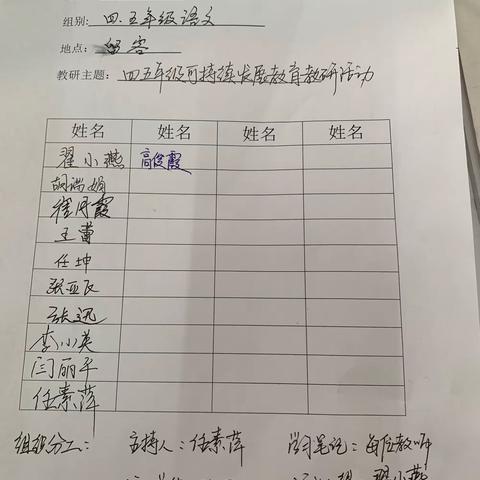 组别: 四.五年级语文
地点:
教研主题: 四五年级可持续发展教育教研活动
姓名 姓名 姓名 姓名
翟小燕 高俊霞
胡瑞娟
霞
王蕾
任坤
张亚民
张迅
李小英
闫丽平
任素萍
组织分工: 主持人: 任素萍 学习笔记: 每位教师
翟小燕